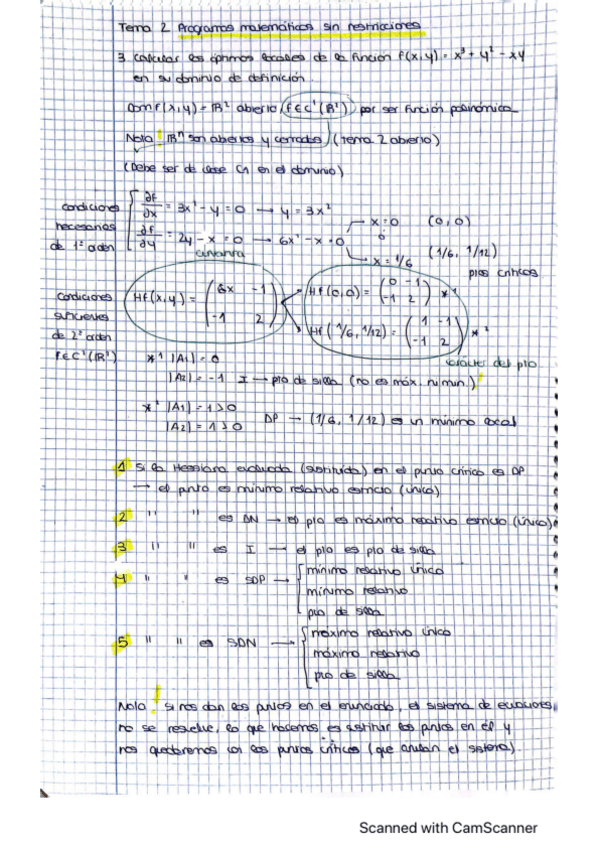 Tema 2 Programas matemáticos sin restricciones
3. Calcular los óptimos locales de la función f(x,y) = x³ + y² - xy
en su dominio de definición.
Dom f(x,y) = ℝ² abierto (f ∈ C¹(ℝ²)) por ser función polinómica
Nota! ℝⁿ son abiertos y cerrados (Tema 2 abierto)
(Debe ser de clase C₁ en el dominio)
condiciones necesarias de 1º orden
∂f/∂x = 3x² - y = 0 → y = 3x²
∂f/∂y = 2y - x = 0 → 6x² - x = 0
x = 0 (0,0)
x = 1/6 (1/6, 1/12)
ptos críticos
condiciones suficientes de 2º orden f ∈ C²(ℝ²)
Hf(x,y) = (6x -1
-1 2)
Hf(0,0) = (0 -1
-1 2) *¹
Hf(1/6, 1/12) = (1 -1
-1 2) *²
carácter del pto
*¹ |A₁| = 0
|A₂| = -1 I → pto de silla (no es máx. ni min.)!
*² |A₁| = 1 > 0
|A₂| = 1 > 0 DP → (1/6, 1/12) es un mínimo local
1 Si la Hessiana evaluada (sustituida) en el punto crítico es DP
→ el punto es mínimo relativo estricto (único)
2 " " es DN → el pto es máximo relativo estricto (único)
3 " " es I → el pto es pto de silla
4 " " es SDP → mínimo relativo único
mínimo relativo
pto de silla
5 " " es SDN → máximo relativo único
máximo relativo
pto de silla
Nota! Si nos dan los puntos en el enunciado, el sistema de ecuaciones
no se resuelve, lo que hacemos es sustituir los puntos en él y
nos quedaremos con los puntos críticos (que anulan el sistema).
Scanned with CamScanner